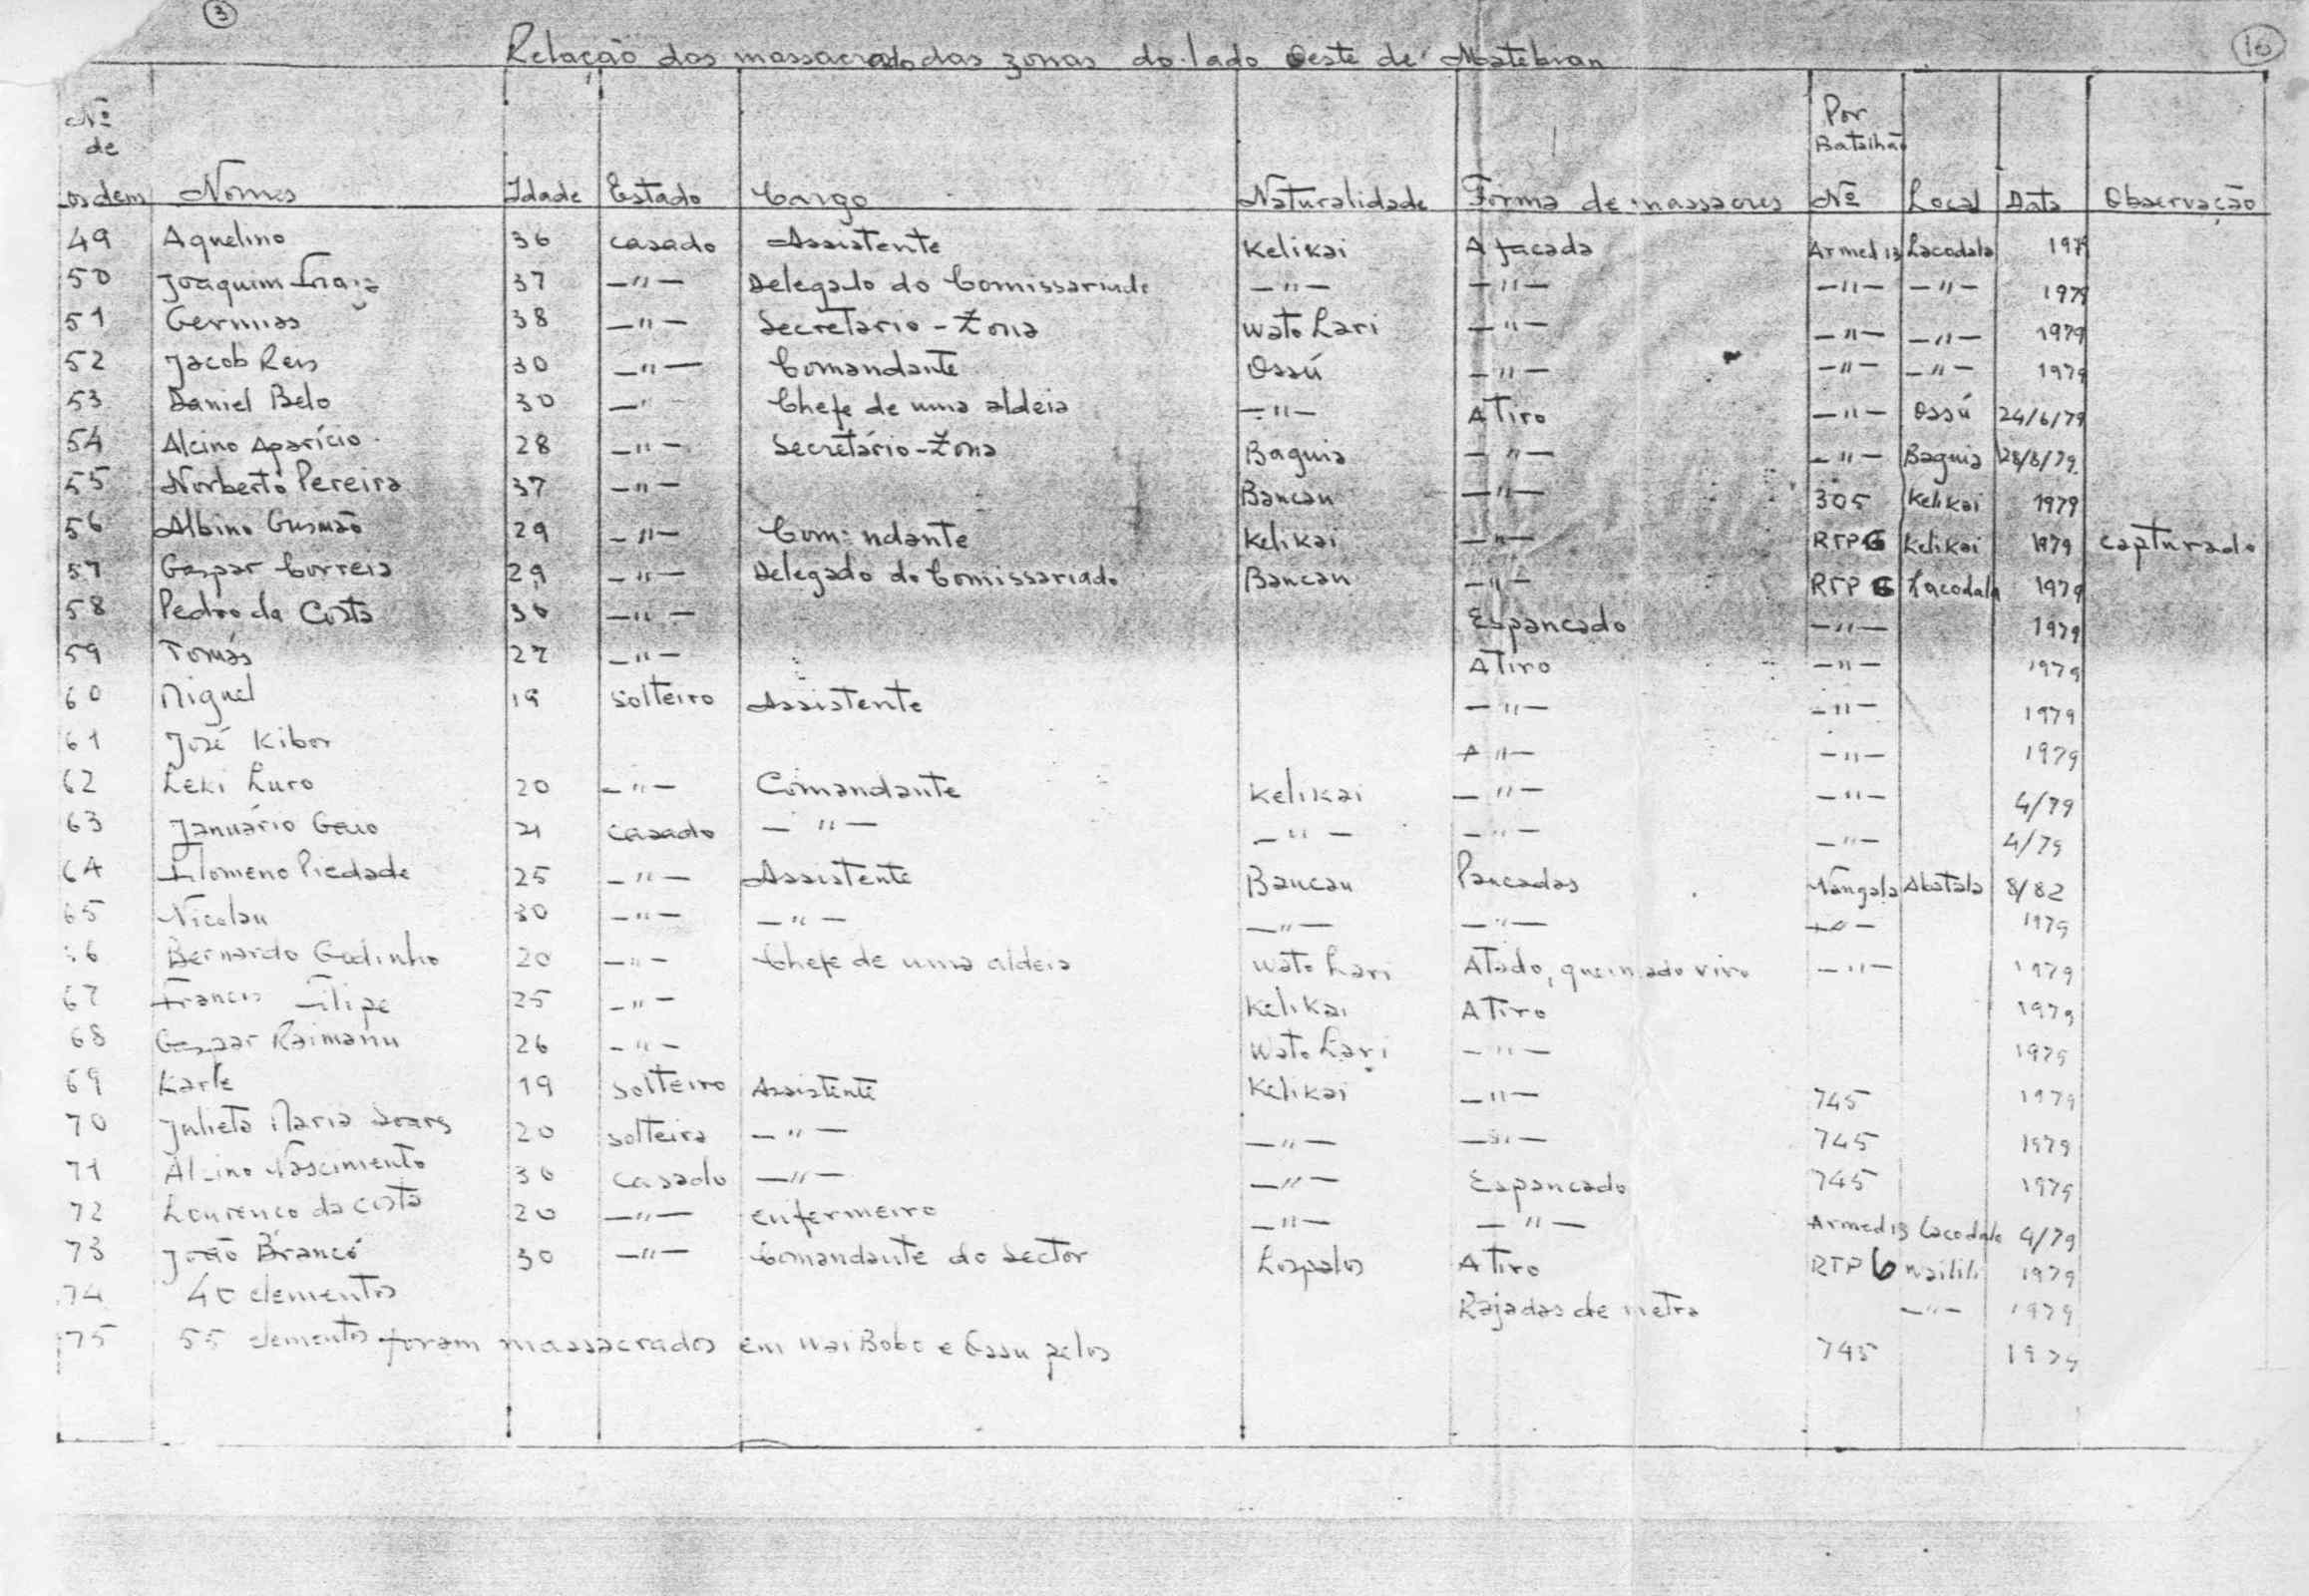 3
10
Relação dos massacrados das zonas do lado Oeste de Matebian
Nº de ordem Nomes Idade Estado Cargo Naturalidade Forma de massacres Por Batalhão Nº Local Data Observação
49 Aquelino 36 casado Assistente Kelikai A facada Armed 13 Lacodala 1979
50 Joaquim 37 —"— Delegado do Comissariado —"— —"— —"— —"— 1979
51 Germias 38 —"— Secretario - Zona Wato Lari —"— —"— —"— 1979
52 Jacob Reis 30 —"— Comandante Ossú —"— —"— —"— 1979
53 Daniel Belo 30 —" Chefe de uma aldeia —"— A Tiro —"— Ossú 24/6/79
54 Alcino Aparício 28 —"— Secretário - Zona Baguia —"— —"— Baguia 28/6/79
55 Norberto Pereira 37 —"— Baucau —"— 305 Kelikai 1979
56 Albino Gusmão 29 —"— Comandante Kelikai —"— RTP 6 Kelikai 1979 capturado
57 Gaspar Correia 29 —"— Delegado do Comissariado Baucau —"— RTP 6 Lacodala 1979
58 Pedro da Costa 30 —"— Espancado —"— 1979
59 Tomás 27 —"— A Tiro —"— 1979
60 Miguel 19 Solteiro Assistente —"— —"— 1979
61 José Kibor A "— —"— 1979
62 Leki Luro 20 —"— Comandante Kelikai —"— —"— 4/79
63 Januário Gaio 21 casado —"— —"— —"— —"— 4/79
64 Filomeno Piedade 25 —"— Assistente Baucau Pancadas Nangala Abatala 8/82
65 Nicolau 30 —"— —"— —"— —"— —"— 1979
66 Bernardo Godinho 20 —"— Chefe de uma aldeia Wato Lari Atado, queimado vivo —"— 1979
67 Francis Filipe 25 —"— Kelikai A Tiro 1979
68 Gaspar Raimanu 26 —"— Wato Lari —"— 1979
69 Larle 19 Solteiro Assistente Kelikai —"— 745 1979
70 Julieta Maria Soares 20 solteira —"— —"— —"— 745 1979
71 Alcino Nascimento 30 casado —"— —"— Espancado 745 1979
72 Lourenco da Costa 20 —"— enfermeiro —"— —"— Armed 13 Lacodala 4/79
73 João Branco 30 —"— Comandante do Sector Lospalos A Tiro RTP 6 Wailili 1979
74 40 elementos Rajadas de metra —"— 1979
75 55 elementos foram massacrados em Wai Bobo e Ossu pelos 745 1979